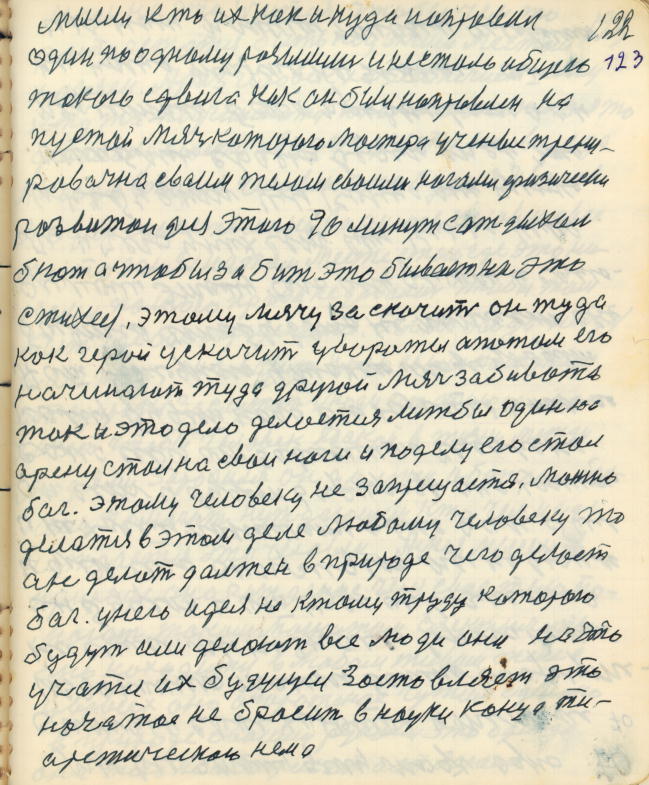 мысли кто их как и куда направлял 122
один по одному розышли и нестоль общего 123
такого сдвига как он был направлен на
пустой мяч которого мастера ученые трени-
ровачна своим телом своими ногами физически
розвитой для этого 90 минут сотдыхом
бьют а чтобы забит это бывает на это
стихея, этому мячу заскочит он туда
как герой ускочит у ворота а потом его
начинают туда другой мяч забивать
так и это дело делается литбы один на
арену стал на свои ноги и поделу его стал
бог. этому человеку не запрещается, можно
делатся в этом деле любому человеку то
а не делат должен в природе чего делает
бог. унего идея не ктому труду которого
будут или делают все люди они на это
учатся их будущее заставляет это
начатое не бросит в науки конца ти-
аретического нема